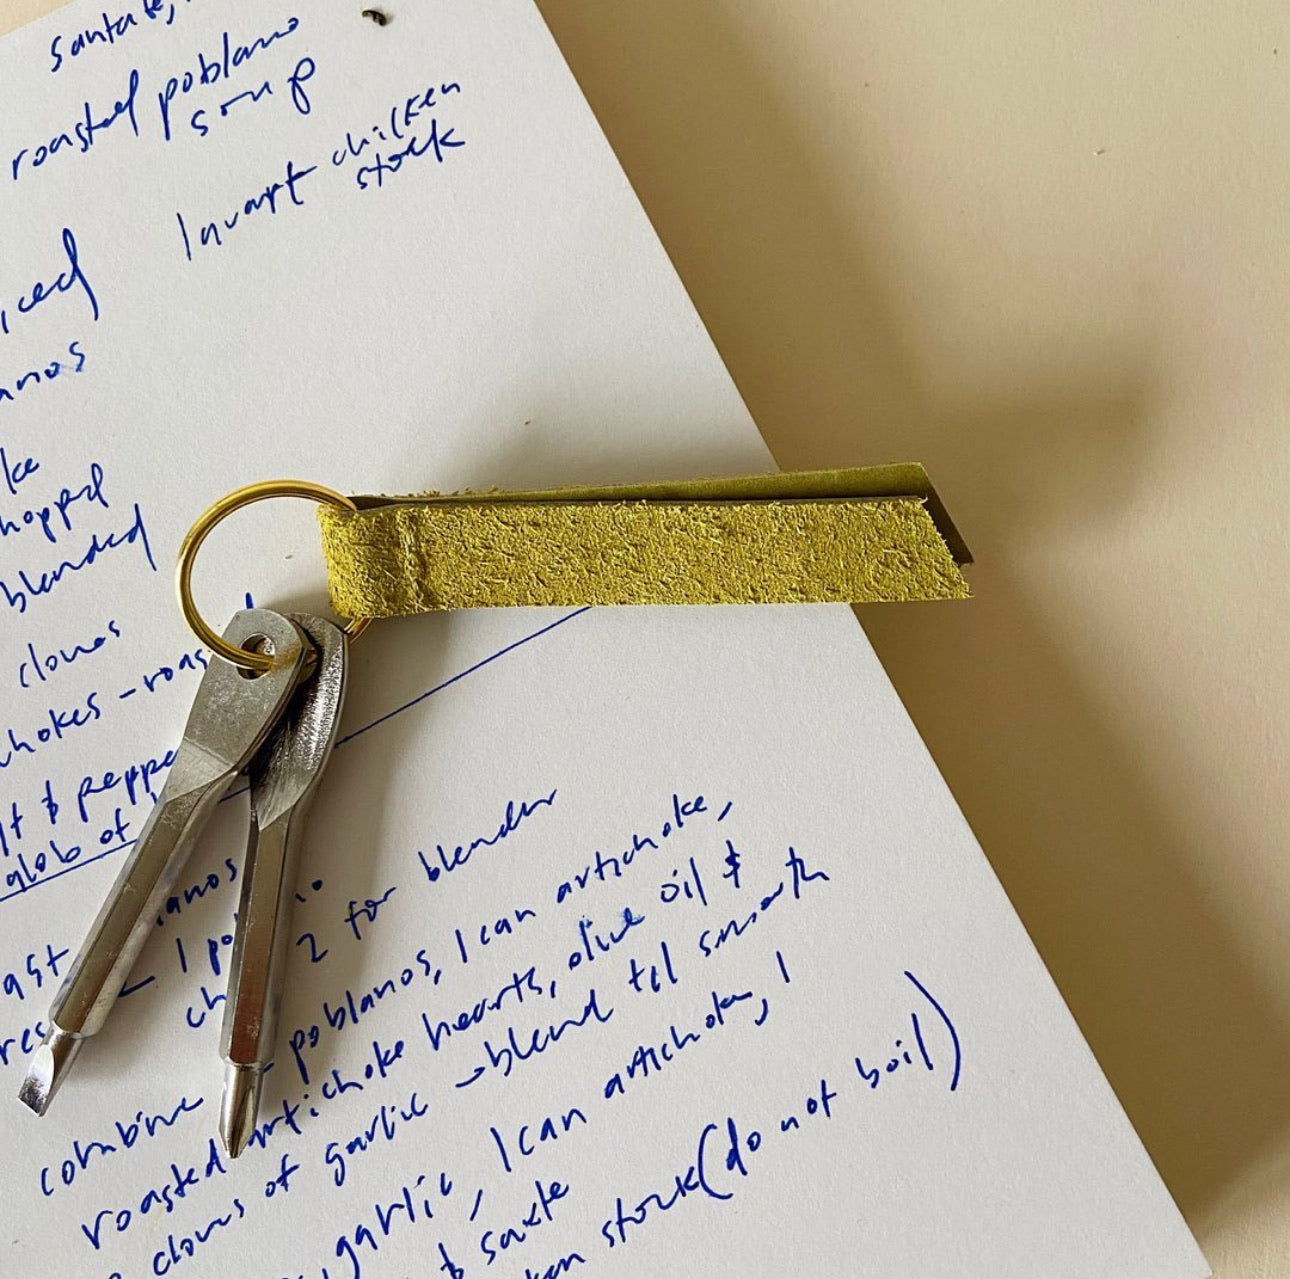 roasted poblano
soup
1 quart chicken
stock
hopped
blended
cloves
chokes - roas
& peppe
glob of
1 po
2 for blender
combine - poblanos, 1 can artichoke,
roasted artichoke hearts, olive oil &
cloves of garlic → blend til smooth
garlic, 1 can artichoke, 1
& saute
stock (do not boil)